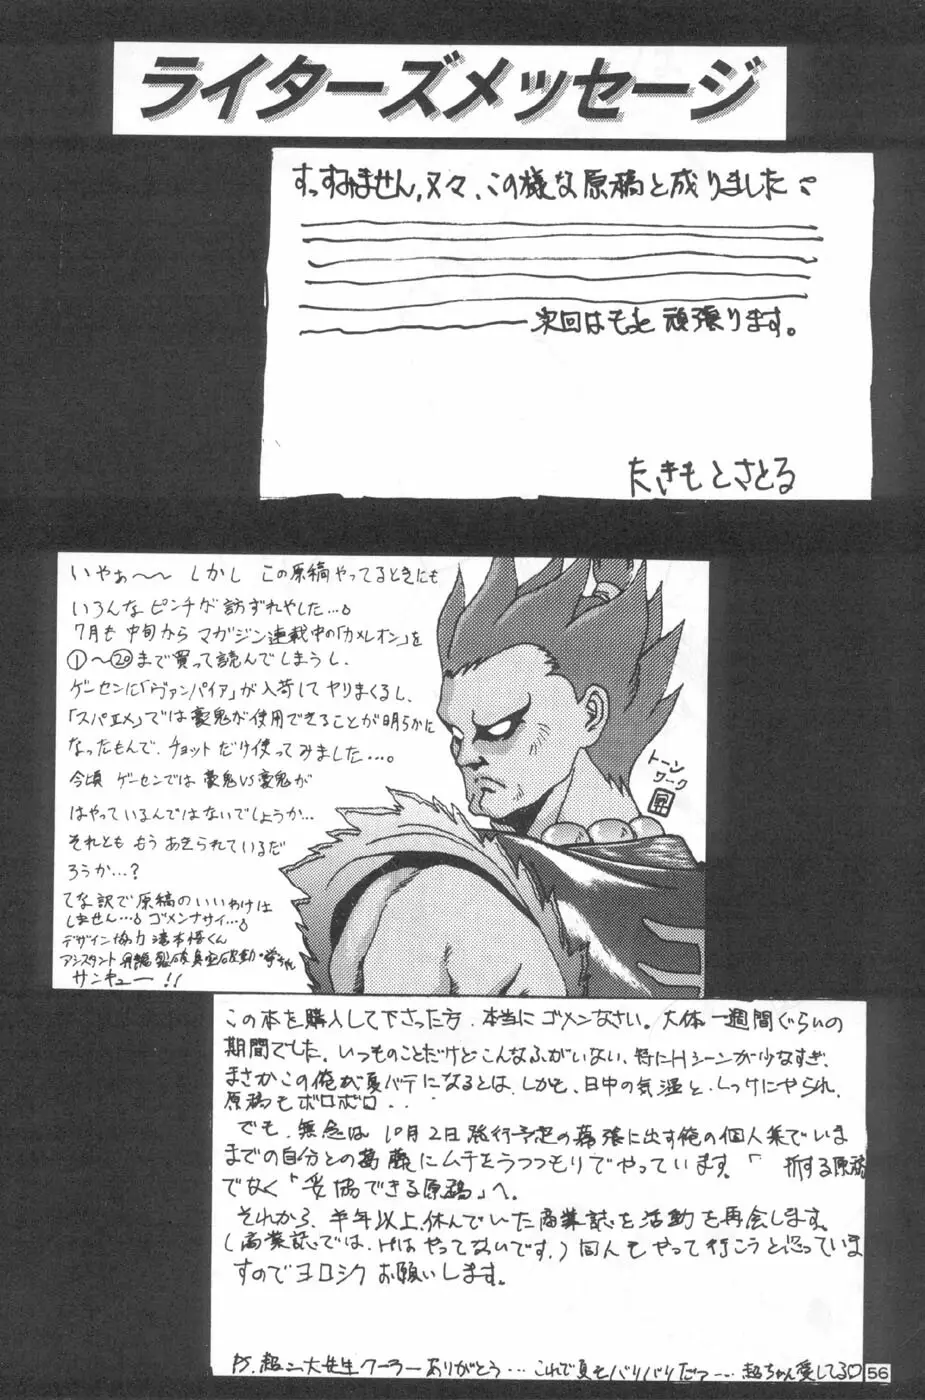 ライターズメッセージ
すっすみません、又々、この様な原稿と成りました
次回はもっと頑張ります。
たきもとさとる
いやぁ〜〜 しかし この原稿やってるときにも
いろんなピンチが訪ずれやした…。
7月も中旬から マガジン連載中の「カメレオン」を
①〜⑳まで買って読んでしまうし、
ゲーセンに「ヴァンパイア」が入荷してヤリまくるし、
「スパエメ」では豪鬼が使用できることが明らかに
なったもんで、チョットだけ使ってみました…。
今頃 ゲーセンでは豪鬼VS豪鬼が
はやっているんではないでしょうか…
それとも もう あきられているだ
ろうか…?
てな訳で原稿のいいわけは
しません…。ゴメンナサイ…。
デザイン協力 滝本悟くん
アシスタント 昇龍裂破真空波動・学ちゃん
サンキュー!!
トーン
ワーク
昇
この本を購入して下さった方、本当にゴメンなさい。大体一週間ぐらいの
期間でした。いつものことだけどこんなふがいない、特にHシーンが少なすぎ、
まさかこの俺が夏バテになるとは、しかも、日中の気温と、しっけにやられ、
原稿もボロボロ・・
でも、無念は10月2日発行予定の幕張に出す俺の個人集でいま
までの自分との葛藤にムチをうつつもりでやっています。「 折する原稿
でなく「妥協できる原稿」へ。
それから、半年以上、休んでいた商業誌を活動を再会します。
(商業誌では、Hはやってないです。)同人もやって行こうと思っていま
すのでヨロシクお願いします。
P.S. 超二大先生クーラーありがとう…これで夏もバリバリだっ…超ちゃん愛してる♡
56